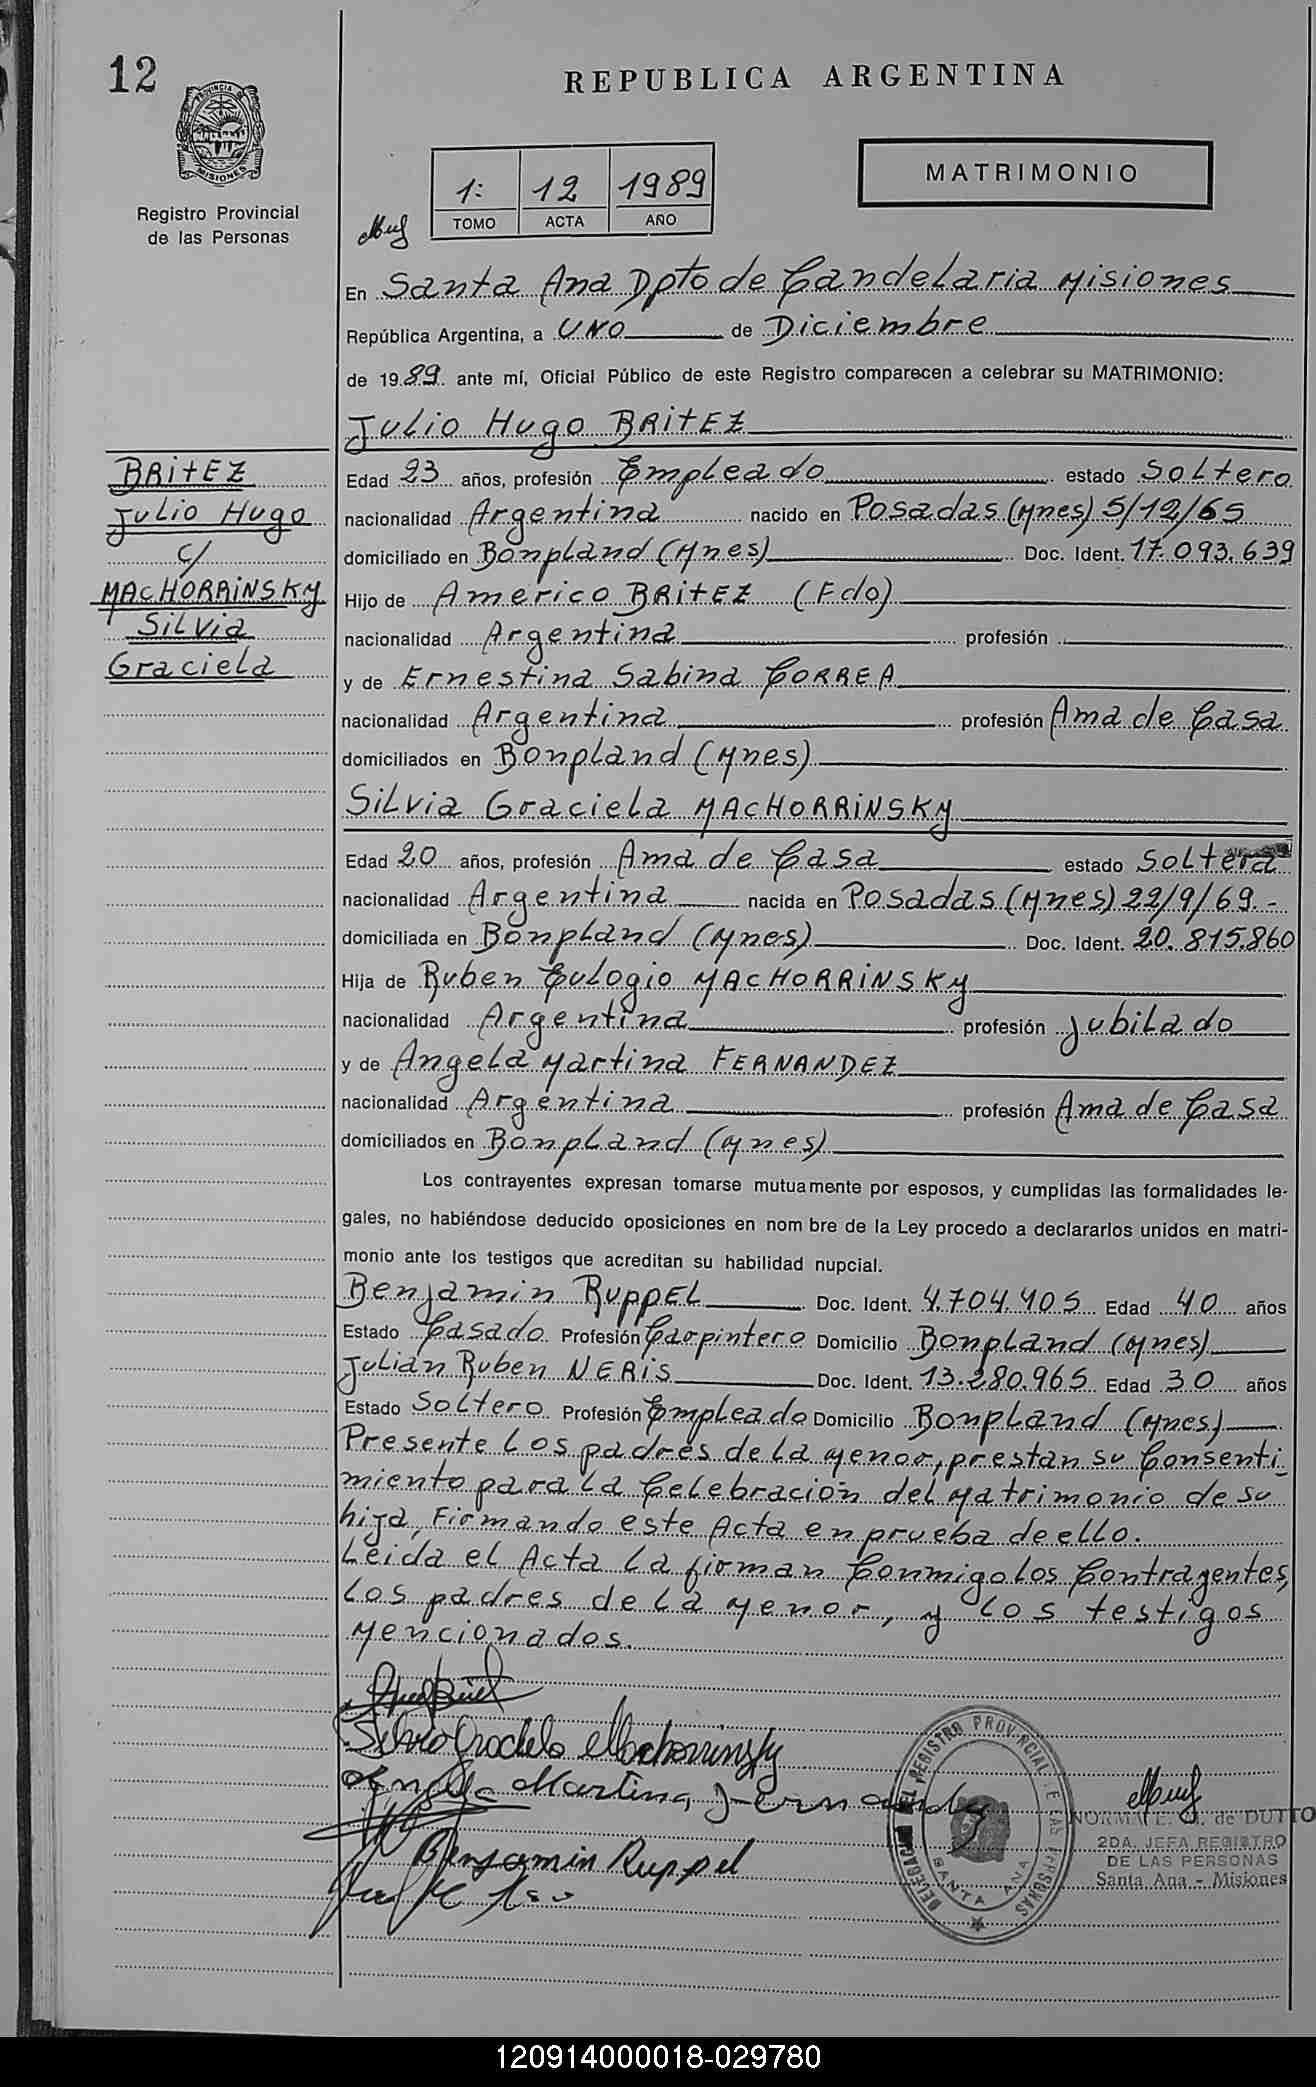 12
REPUBLICA ARGENTINA
PROVINCIA DE
MISIONES
Registro Provincial
de las Personas
MATRIMONIO
1: 12 1989
TOMO ACTA AÑO
En Santa Ana Dpto de Candelaria Misiones
República Argentina, a UNO de Diciembre
de 1989. ante mí, Oficial Público de este Registro comparecen a celebrar su MATRIMONIO:
Julio Hugo BRITEZ
BRITEZ
Julio Hugo
c/
MACHORRINSKY
Silvia
Graciela
Edad 23 años, profesión Empleado estado Soltero
nacionalidad Argentina nacido en Posadas (Mnes) 5/12/65
domiciliado en Bonpland (Mnes) Doc. Ident. 17.093.639
Hijo de Americo BRITEZ (Fdo)
nacionalidad Argentina profesión
y de Ernestina Sabina CORREA
nacionalidad Argentina profesión Ama de Casa
domiciliados en Bonpland (Mnes)
Silvia Graciela MACHORRINSKY
Edad 20 años, profesión Ama de Casa estado Soltera
nacionalidad Argentina nacida en Posadas (Mnes) 22/9/69.-
domiciliada en Bonpland (Mnes) Doc. Ident. 20.815.860
Hija de Ruben Eulogio MACHORRINSKY
nacionalidad Argentina profesión Jubilado
y de Angela Martina FERNANDEZ
nacionalidad Argentina profesión Ama de Casa
domiciliados en Bonpland (Mnes)
Los contrayentes expresan tomarse mutuamente por esposos, y cumplidas las formalidades le-
gales, no habiéndose deducido oposiciones en nom bre de la Ley procedo a declararlos unidos en matri-
monio ante los testigos que acreditan su habilidad nupcial.
Benjamin RUPPEL Doc. Ident. 4.704.405 Edad 40 años
Estado Casado Profesión Carpintero Domicilio Bonpland (Mnes)
Julián Ruben NERIS Doc. Ident. 13.280.965 Edad 30 años
Estado Soltero Profesión Empleado Domicilio Bonpland (Mnes)
Presente los padres de la menor, prestan su Consenti_
miento para la Celebración del Matrimonio de su
hija, Firmando este Acta en prueba de ello.
Leida el Acta la firman Conmigo los Contragentes,
los padres de la menor, y los testigos
mencionados.
Silvia Graciela Machorrinsky
Angela Martina Fernandez
Benjamin Ruppel
DELEGACION DEL REGISTRO PROVINCIAL DE LAS PERSONAS
SANTA ANA
NORMA E. de DUTTO
2DA. JEFA REGISTRO
DE LAS PERSONAS
Santa Ana - Misiones
120914000018-029780